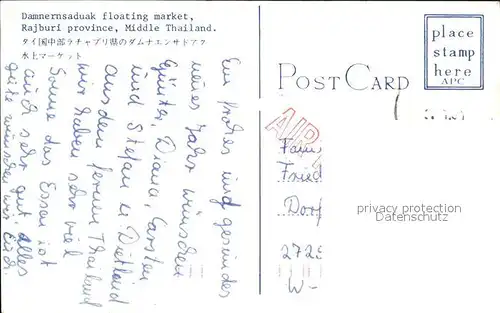 Damnernsaduak floating market,
Rajburi province, Middle Thailand.
タイ国中部ラチャブリ県のダムナエンサドアク
水上マーケット
Ein frohes und gesundes
neues Jahr wünschen
Günter, Diana, Carsten
und Stefan u. Dietlind
aus dem fernen Thailand
wir haben sehr viel
Sonne das Essen ist
auch sehr gut alles
gute wünschen wir Euch.
POST CARD
place
stamp
here
APC
AIR
Fam
Fried
Dorf
2725
W-
privacy protection
Datenschutz